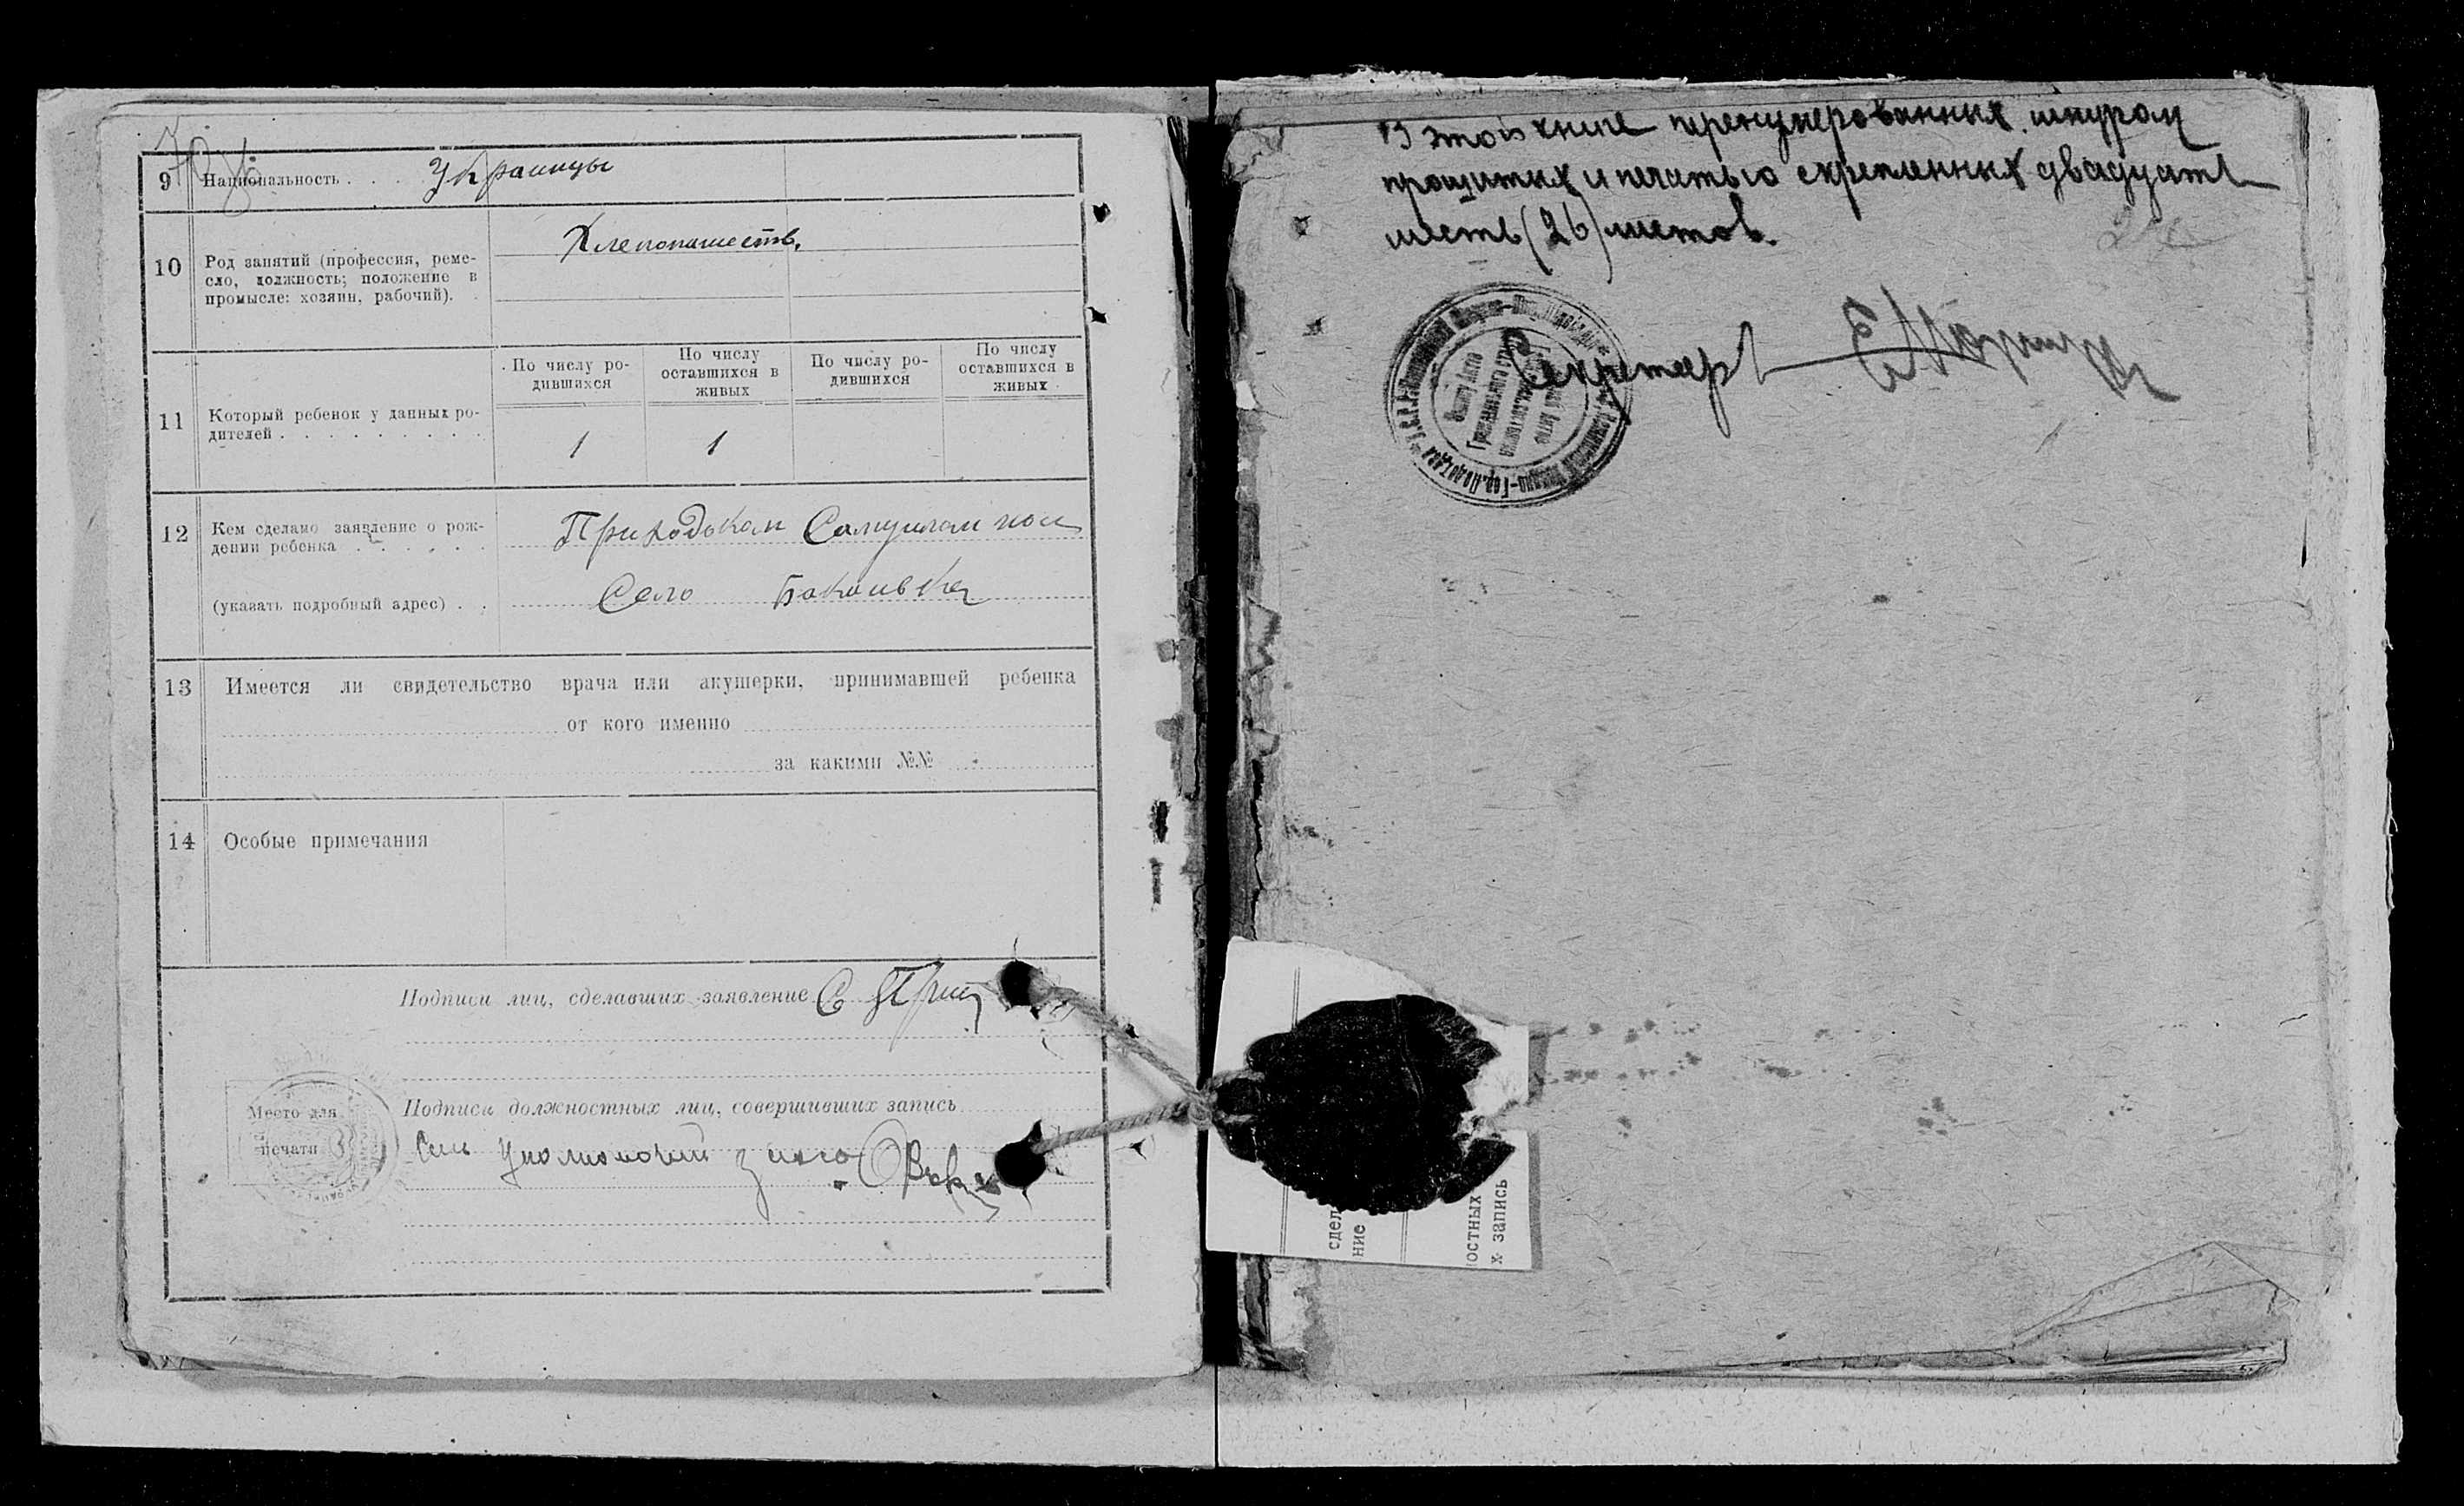 9 Национальность . . . Украинцы
10 Род занятий (профессия, реме-
сло, должность; положение в
промысле: хозяин, рабочий). .
Хлепопашеств.
11 Который ребенок у данных ро-
дителей . . . . . . . . .
По числу ро-
дившихся
По числу
оставшихся в
живых
По числу ро-
дившихся
По числу
оставшихся в
живых
1 1
12 Кем сделано заявление о рож-
дении ребенка . . . . . .
Приходькам Самуилам
(указать подробный адрес) . .
Село
13 Имеется ли свидетельство врача или акушерки, принимавшей ребенка
от кого именно
за какими №№
14 Особые примечания
Подписи лиц, сделавших заявление С
Место для
печати
Подписи должностных лиц, совершивших запись
В этой книге перенумерованных шнуром
прошитых и печатью скрепленных двадцать
шесть (26) листов.
Секретарь
сдел
ние
остных
х запись